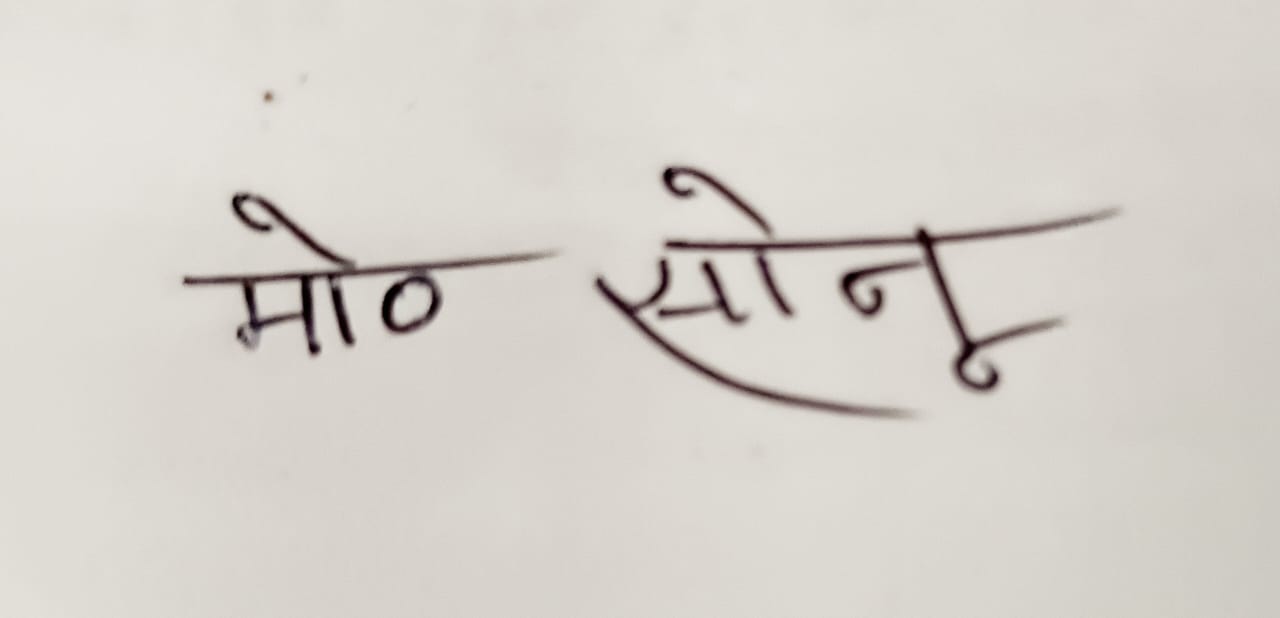 मो० सोनू